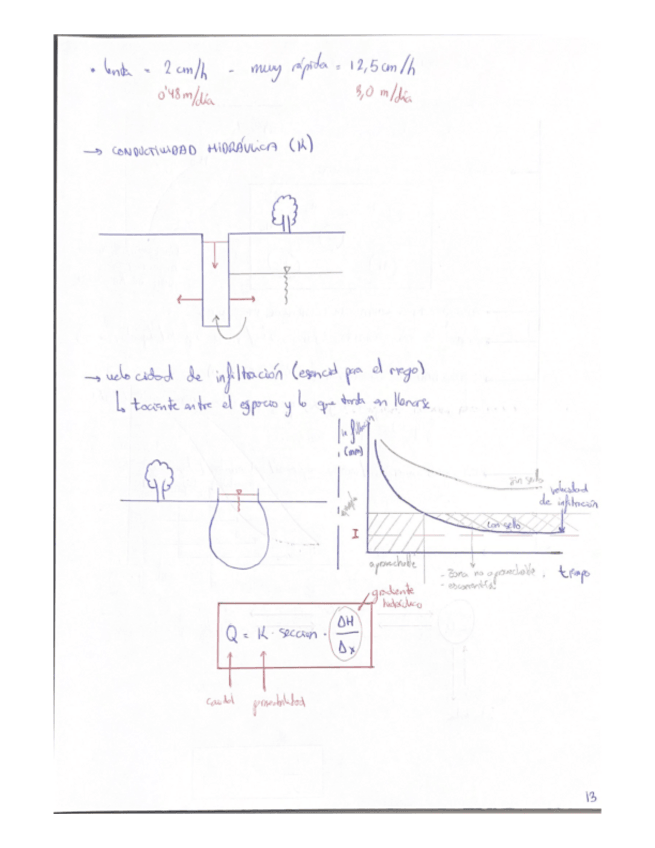 • lenta = 2 cm/h - muy rápida = 12,5 cm/h
0'48 m/día 3,0 m/día
→ CONDUCTIVIDAD HIDRÁULICA (K)
→ velocidad de infiltración (esencial para el riego)
↳ cociente entre el espacio y lo que tarda en llenarse
(mm)
sin sello
velocidad de infiltración
con sello
I
aprovechable
- Zona no aprovechable
tiempo
gradiente hidráulico
Q = K · sección · ΔH/Δx
caudal permeabilidad
13